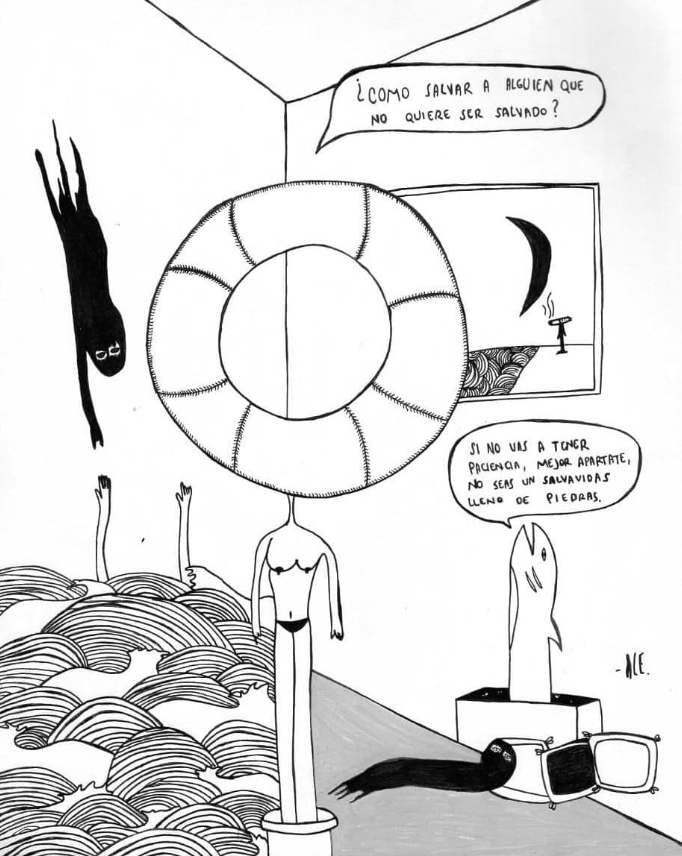 ¿COMO SALVAR A ALGUIEN QUE
NO QUIERE SER SALVADO?
SI NO VAS A TENER
PACIENCIA, MEJOR APARTATE,
NO SEAS UN SALVAVIDAS
LLENO DE PIEDRAS.
-ALE.